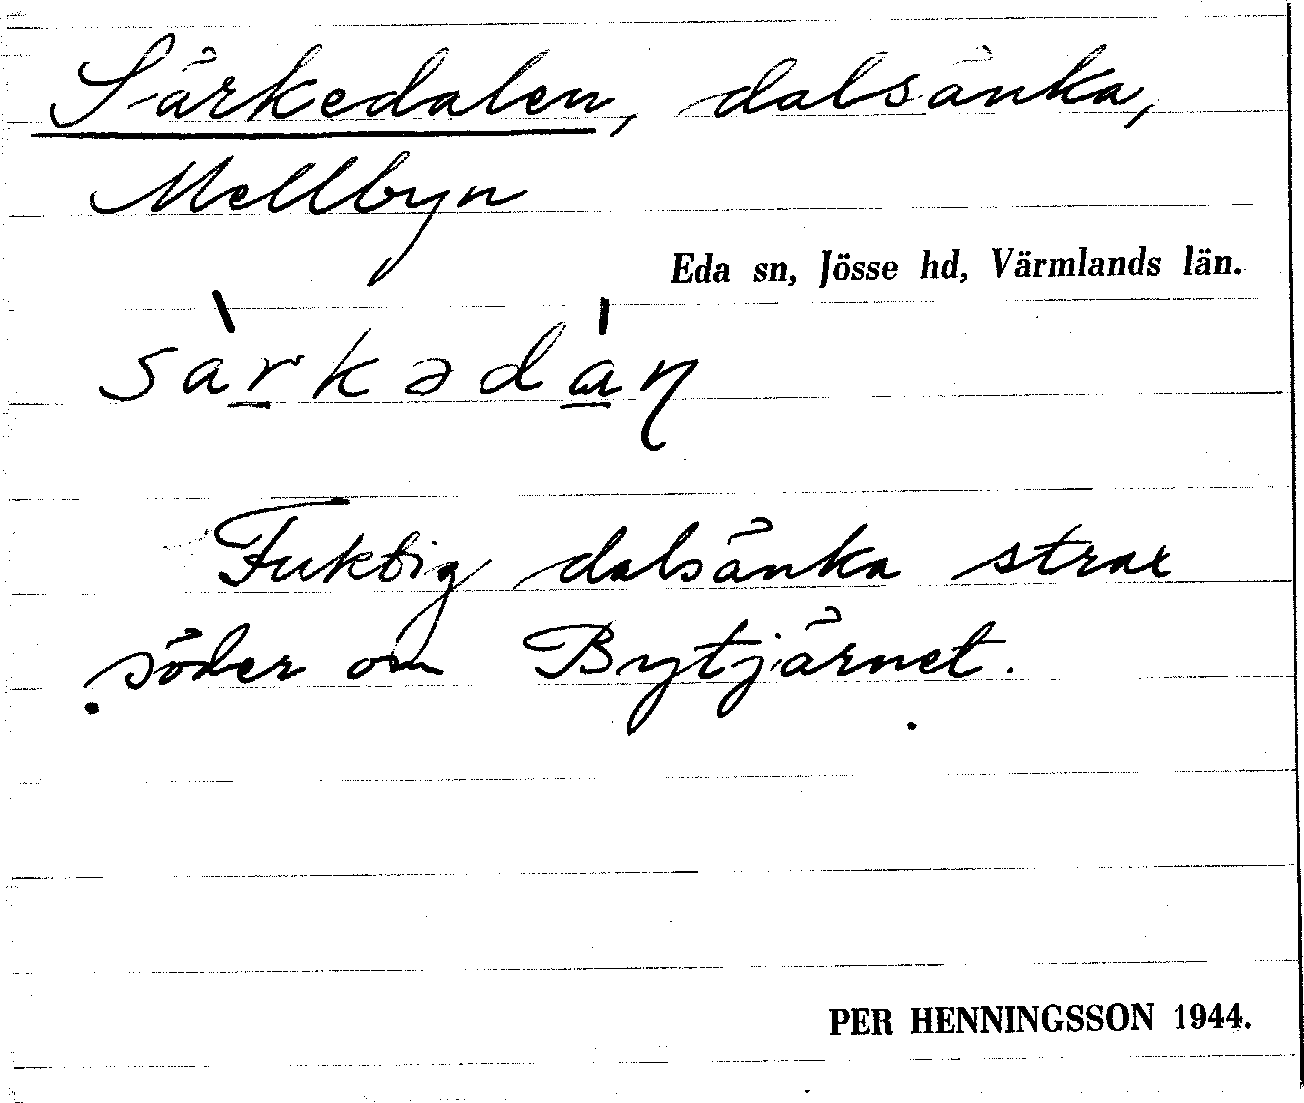 Särkedalen, dalsänka,
Mellbyn
Eda sn, Jösse hd, Värmlands län.
sàrkədán
Fuktig dalsänka strax
söder om Bytjärnet.
PER HENNINGSSON 1944.